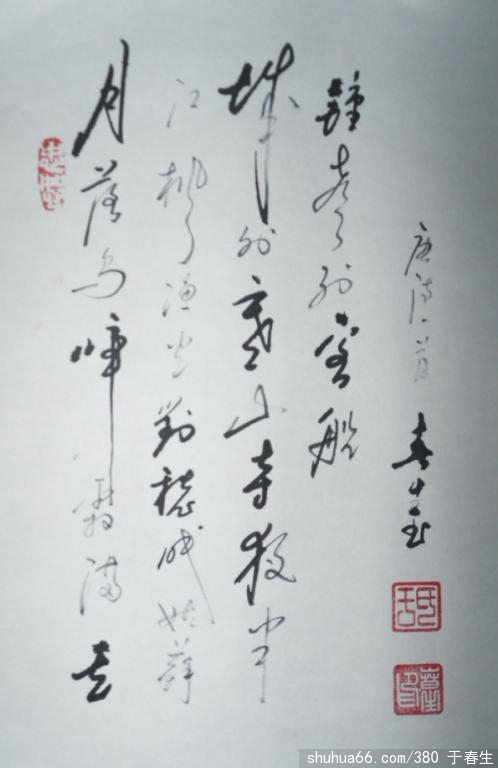 月落烏啼霜滿天
江楓漁火對愁眠姑蘇
城外寒山寺夜半
鐘聲到客船
唐詩一首 春生書
shuhua66.com/380 于春生